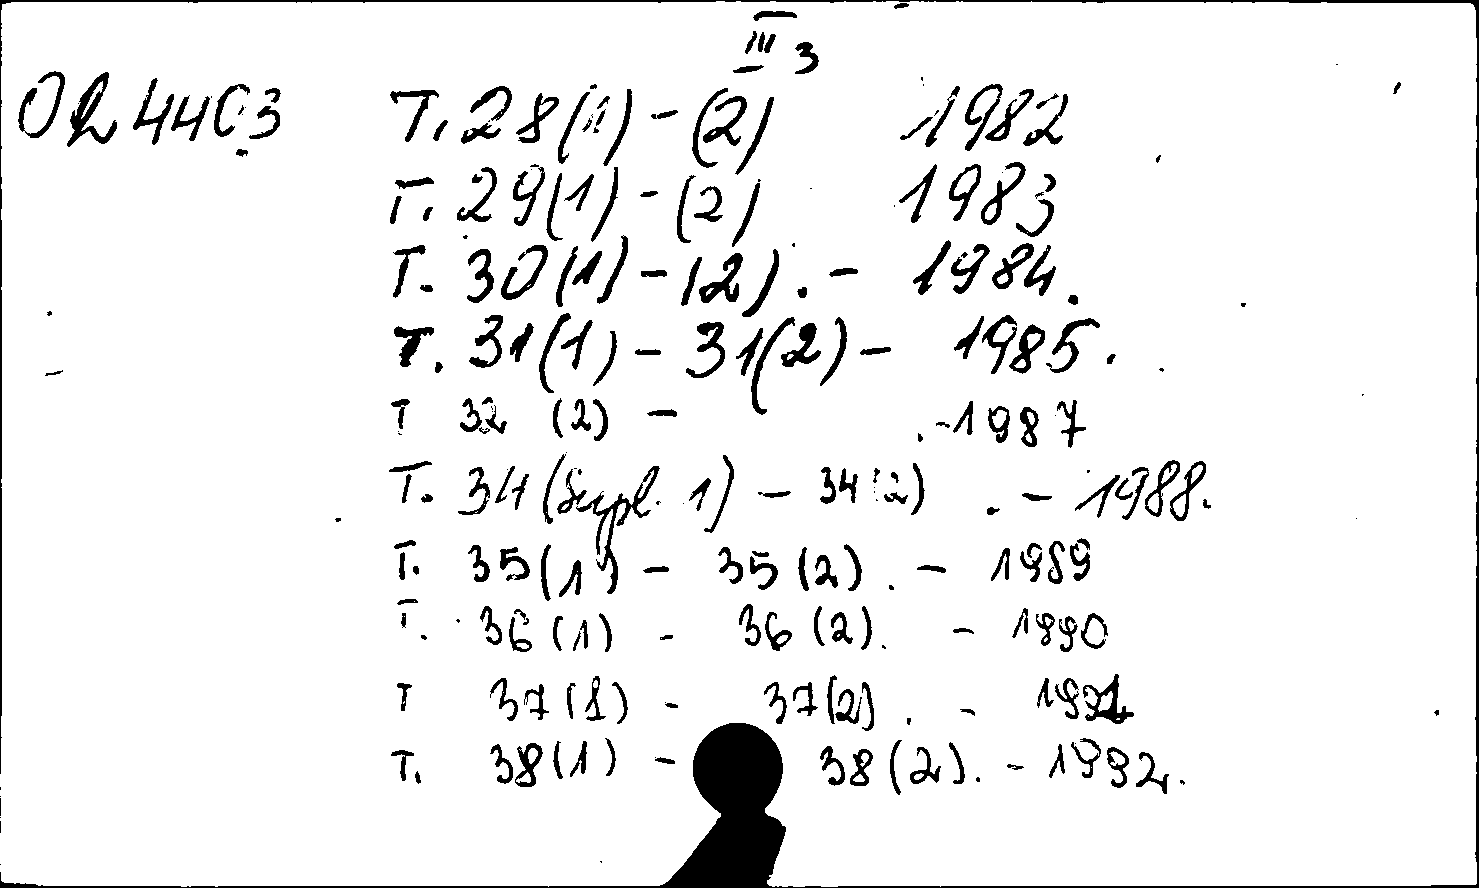 III 3
02 4403 T. 28(1) - (2) 1982
T. 29(1) - (2) 1983
T. 30(1) - (2). - 1984.
T. 31(1) - 31(2) - 1985.
T 32 (2) - .-1987
T. 34(Supl. 1) - 34(2) . - 1988.
T. 35(1) - 35(2). - 1989
T. 36(1) - 36(2). - 1990
T 37(1) - 37(2). - 1991
T. 38(1) - 38(2). - 1992.